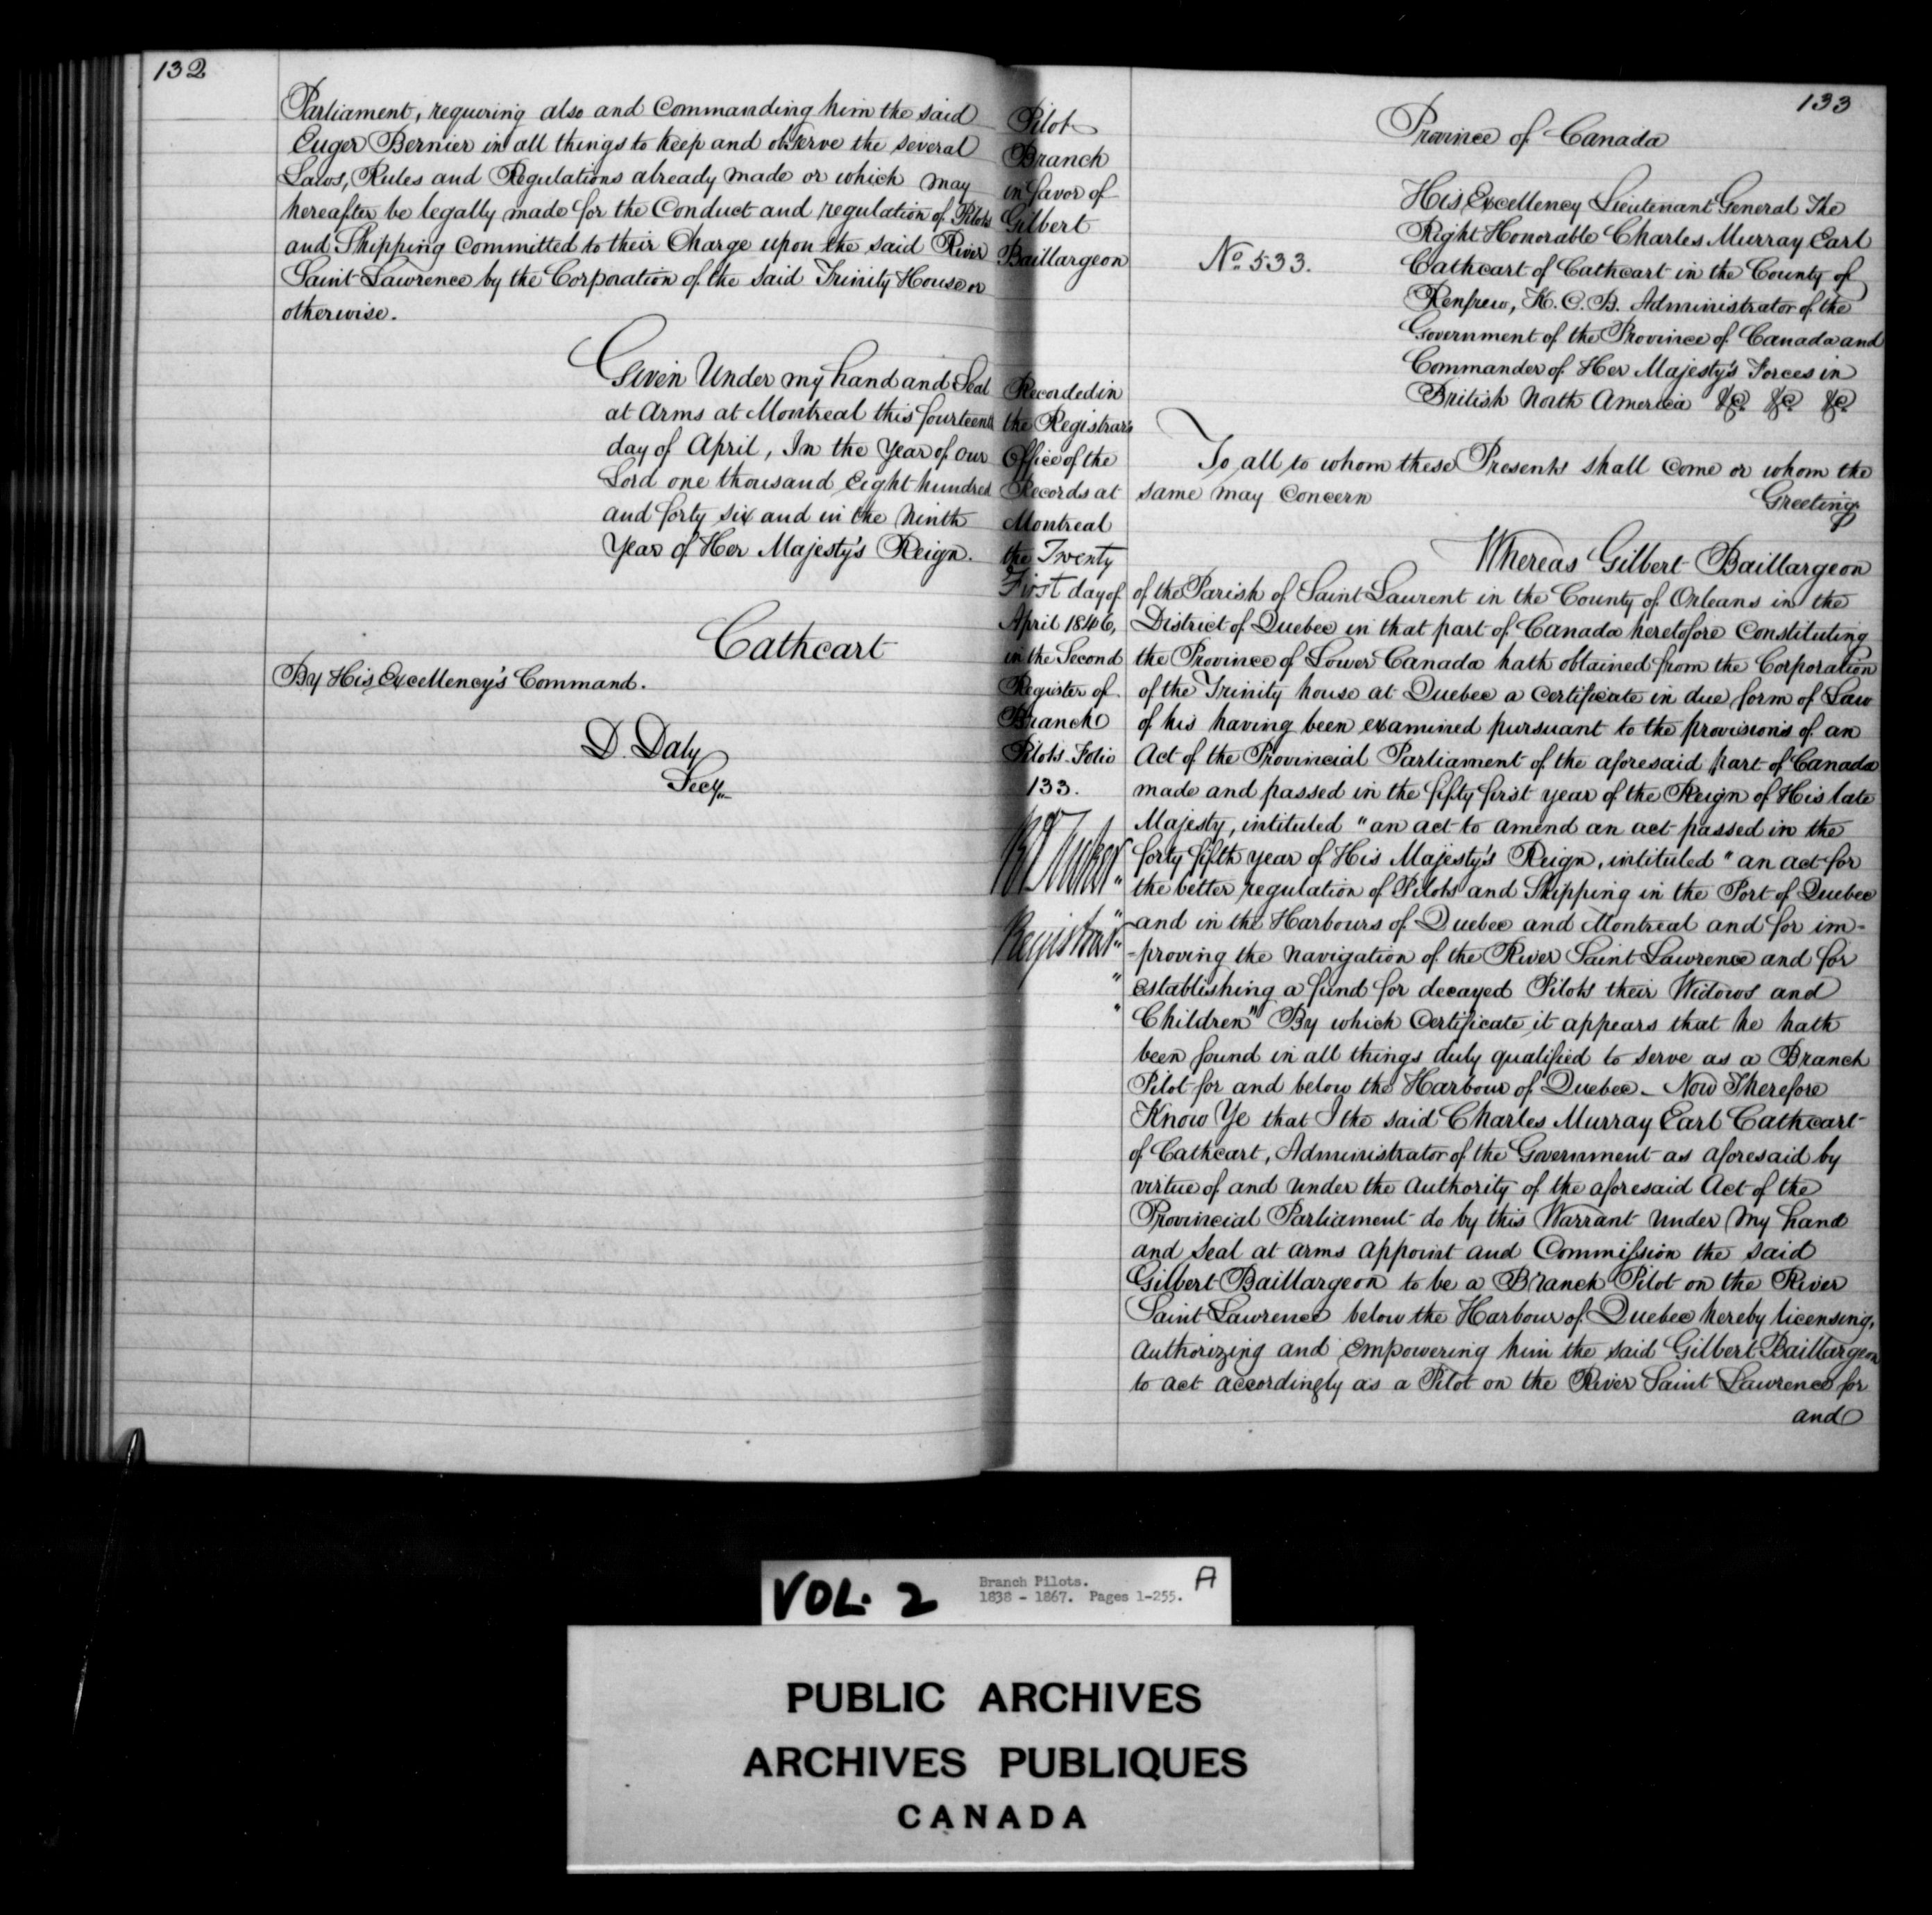 132
Parliament, requiring also and Commanding him the said
Euger Bernier in all things to keep and observe the several
Laws, Rules and Regulations already made or which may
hereafter be legally made for the Conduct and regulation of Pilots
and Shipping Committed to their Charge upon the said River
Saint Lawrence by the Corporation of the said Trinity House or
otherwise.
Given Under my hand and Seal
at Arms at Montreal this fourteenth
day of April, In the Year of our
Lord one thousand Eight hundred
and forty six and in the Ninth
Year of Her Majesty's Reign.
Cathcart
By His Excellency's Command.
D. Daly
Secy.
133
Pilot
Branch
in favor of
Gilbert
Baillargeon
Recorded in
the Registrar's
Office of the
Records at
Montreal
the Twenty
First day of
April 1846,
in the Second
Register of
Branch
Pilots. Folio
133.
Registrar
Province of Canada
No. 533.
His Excellency Lieutenant General The
Right Honorable Charles Murray Earl
Cathcart of Cathcart in the County of
Renfrew, K. C. B. Administrator of the
Government of the Province of Canada and
Commander of Her Majesty's Forces in
British North America &c &c &c
To all to whom these Presents shall come or whom the
same may Concern
Greeting
Whereas Gilbert Baillargeon
of the Parish of Saint Laurent in the County of Orleans in the
District of Quebec in that part of Canada heretofore Constituting
the Province of Lower Canada hath obtained from the Corporation
of the Trinity house at Quebec a Certificate in due form of Law
of his having been examined pursuant to the provisions of an
Act of the Provincial Parliament of the aforesaid part of Canada
made and passed in the fifty first year of the Reign of His late
Majesty, intituled "an act to amend an act passed in the
forty fifth year of His Majesty's Reign, intituled "an act for
" the better regulation of Pilots and Shipping in the Port of Quebec
" and in the Harbours of Quebec and Montreal and for im-
" -proving the Navigation of the River Saint Lawrence and for
" establishing a fund for decayed Pilots their Widows and
" Children" By which Certificate it appears that he hath
been found in all things duly qualified to serve as a Branch
Pilot for and below the Harbour of Quebec - Now Therefore
Know Ye that I the said Charles Murray Earl Cathcart
of Cathcart, Administrator of the Government as aforesaid by
virtue of and under the Authority of the aforesaid Act of the
Provincial Parliament do by this Warrant under my hand
and Seal at arms appoint and Commission the said
Gilbert Baillargeon to be a Branch Pilot on the River
Saint Lawrence below the Harbour of Quebec hereby licensing,
Authorizing and Empowering him the said Gilbert Baillargeon
to act accordingly as a Pilot on the River Saint Lawrence for
and
VOL. 2
Branch Pilots.
1838 - 1867. Pages 1-255.
A
PUBLIC ARCHIVES
ARCHIVES PUBLIQUES
CANADA